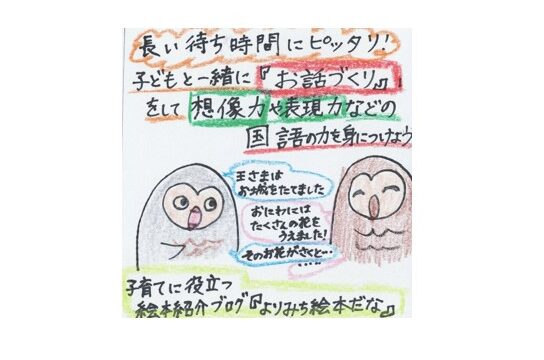 長い待ち時間にピッタリ!
子どもと一緒に『お話づくり』
をして想像力や表現力などの
国語の力を身につけよう
王さまは
お城をたてました
おにわには
たくさんの花を
うえました!
そのお花がさくと…
....
子育てに役立つ
絵本紹介ブログ『よりみち絵本だな』